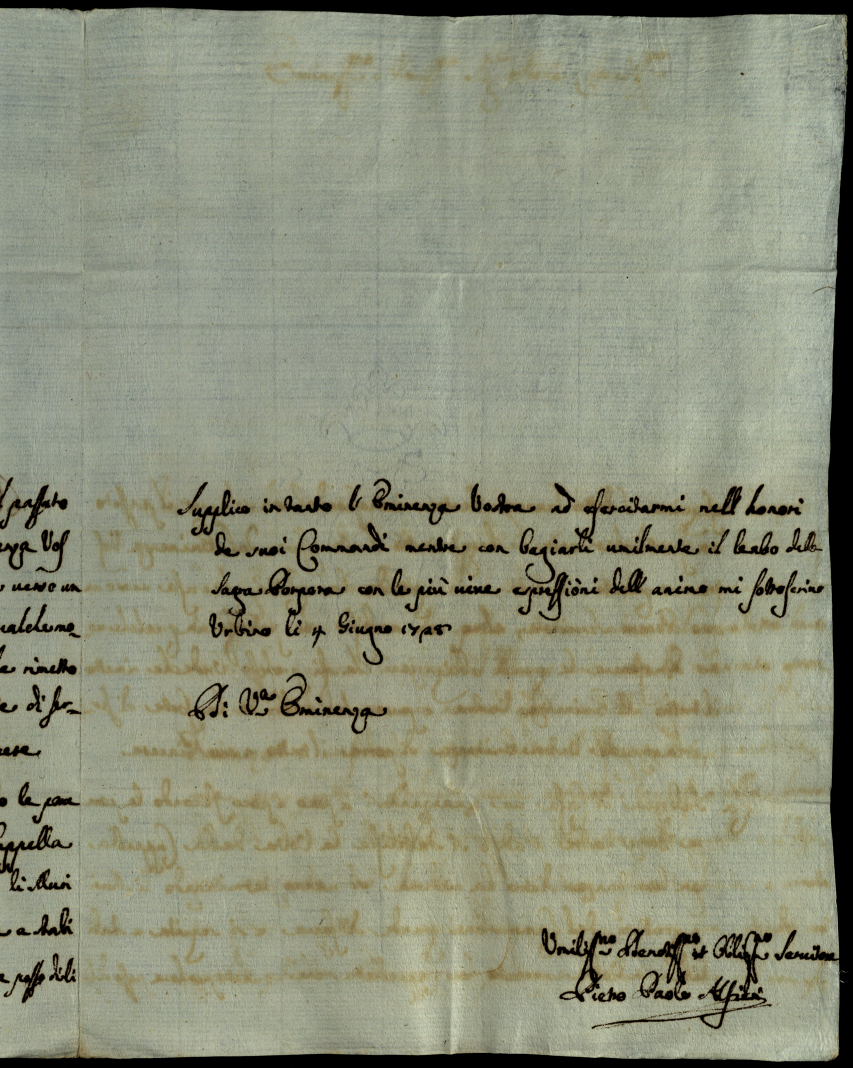 passato
enza Vos
verso un
rimetto
e di ser-
o le pene
appella
li Musi
a a tali
e posso di li
Supplico intanto l'Eminenza Vostra ad esercitarmi nell honori
de suoi Commandi mentre con bagiarli umilmente il lembo della
Sagra Porpora con le più vive espressioni dell animo mi sottoscrivo
Urbino li 4 Giugno
Di Vra Eminenza
Umilissmo Devotissmo et Obligmo Servitore
Pietro Paolo Alfieri